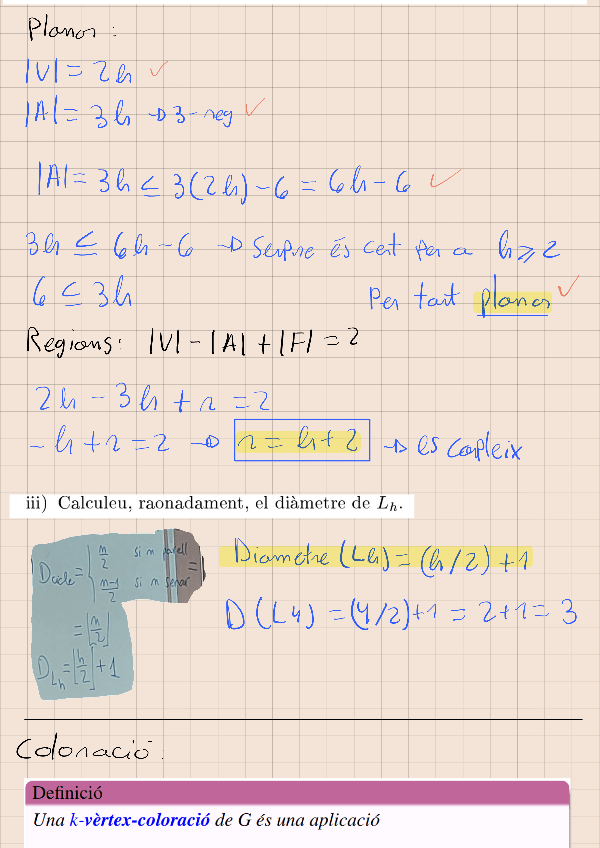 Planar :
|V| = 2h ✓
|A| = 3h → 3-reg ✓
|A| = 3h ≤ 3(2h) - 6 = 6h - 6 ✓
3h ≤ 6h - 6 → Sempre és cert per a h ≥ 2
6 ≤ 3h Per tant planar ✓
Regions: |V| - |A| + |F| = 2
2h - 3h + r = 2
-h + r = 2 → r = h + 2 → es compleix
iii) Calculeu, raonadament, el diàmetre de Lh.
Dcicle = { n/2 si n parell =
n-1/2 si n senar
= ⌊n/2⌋
DLh = ⌊h/2⌋ + 1
Diametre (Lh) = (h/2) + 1
D (L4) = (4/2) + 1 = 2 + 1 = 3
Coloració:
Definició
Una k-vèrtex-coloració de G és una aplicació